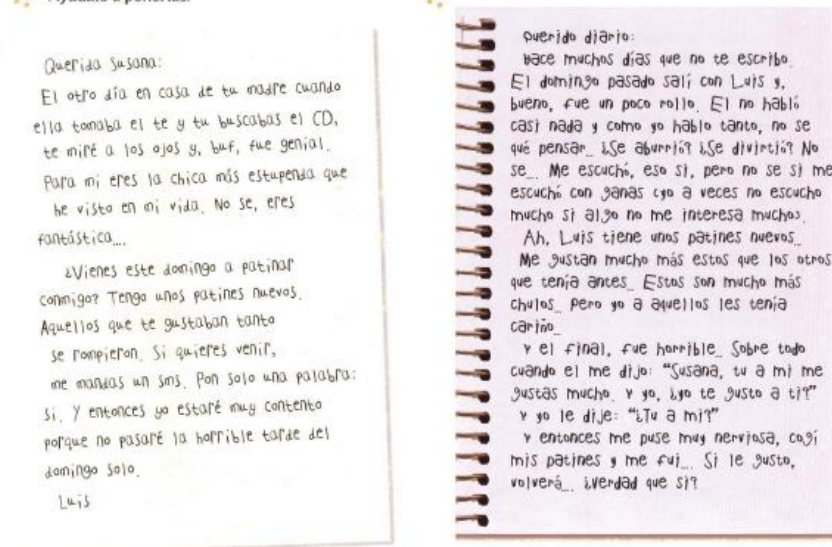 a ponerlas.
Querida Susana:
El otro día en casa de tu madre cuando
ella tomaba el te y tu buscabas el CD,
te miré a los ojos y, buf, fue genial.
Para mi eres la chica más estupenda que
he visto en mi vida. No se, eres
fantástica...
¿Vienes este domingo a patinar
conmigo? Tengo unos patines nuevos.
Aquellos que te gustaban tanto
se rompieron. Si quieres venir,
me mandas un sms. Pon solo una palabra:
si. Y entonces yo estaré muy contento
porque no pasaré la horrible tarde del
domingo solo.
Luis
Querido diario:
Hace muchos días que no te escribo.
El domingo pasado salí con Luis y,
bueno, fue un poco rollo. El no habló
casi nada y como yo hablo tanto, no se
qué pensar... ¿Se aburrió? ¿Se divirtió? No
se... Me escuchó, eso si, pero no se si me
escuchó con ganas (yo a veces no escucho
mucho si algo no me interesa mucho).
Ah, Luis tiene unos patines nuevos...
Me gustan mucho más estos que los otros
que tenía antes... Estos son mucho más
chulos... Pero yo a aquellos les tenía
cariño...
Y el final, fue horrible... Sobre todo
cuando el me dijo: "Susana, tu a mi me
gustas mucho. Y yo, ¿yo te gusto a ti?"
Y yo le dije: "¿Tu a mi?"
Y entonces me puse muy nerviosa, cogí
mis patines y me fui... Si le gusto,
volverá... ¿Verdad que si?